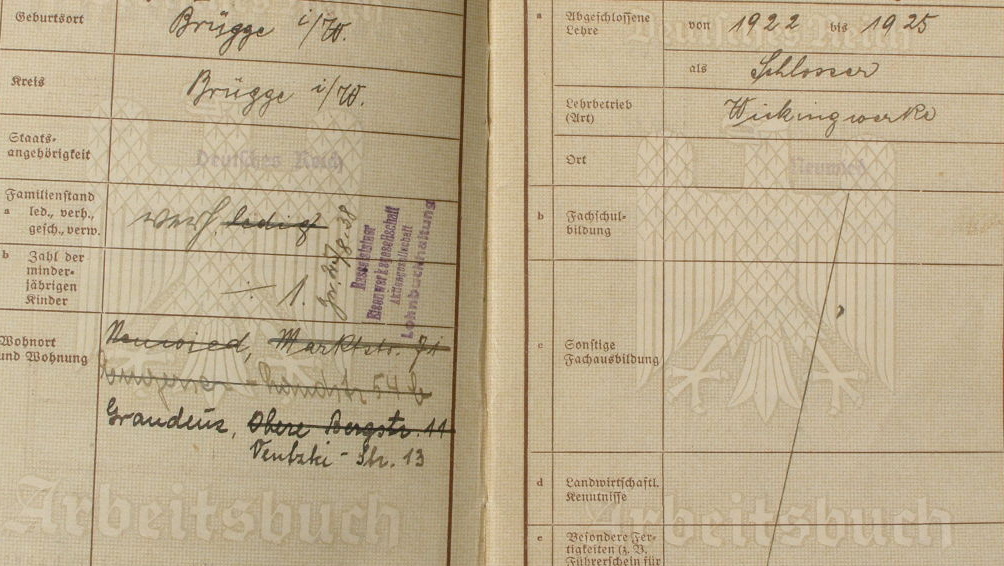 Geburtsort Brügge i/W.
Kreis Brügge i/W.
Staats-
angehörigkeit Deutsches Reich
Familienstand
a led., verh., verh. ledig
gesch., verw.
b Zahl der
minder-
jährigen
Kinder 1.
27.8.38
Rasselsteiner
Eisenwerksgesellschaft
Aktiengesellschaft
Lohnbuchhaltung
Wohnort
und Wohnung
Neuwied, Marktstr. 71
Landstr 54
Graudenz, Obere Bergstr. 11
Ventzki-Str. 13
Arbeitsbuch
a Abgeschlossene
Lehre
von 1922 bis 1925
als Schlosser
Lehrbetrieb
(Art) Wickingwerke
Ort Neuwied
b Fachschul-
bildung
c Sonstige
Fachausbildung
d Landwirtschaftl.
Kenntnisse
e Besondere Fer-
tigkeiten (z. B.
Führerschein für
Deutsches Reich
Arbeitsbuch